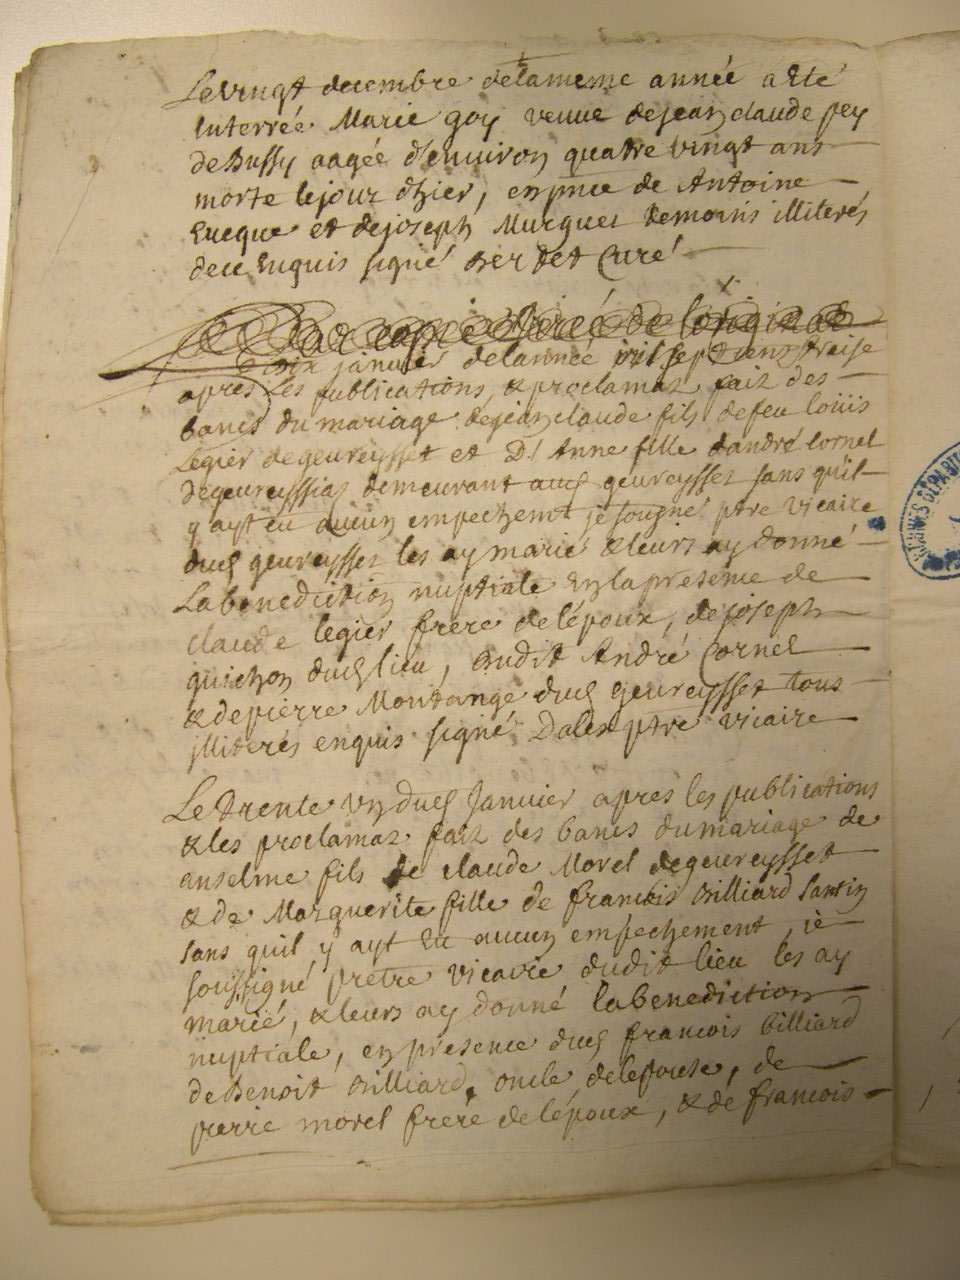 Le vingt decembre delameme année a Eté
Interrée Marie goy veuve dejean claude pey
de Bussy aagée d'environ quatre vingt ans
morte lejour d'hier, en pnce de Antoine
Eucque et dejoseph Murguet temoins illiterés
dece Enquis signé Berdet Curé
Par copie tirée de loriginal
Le dix janvier delannée mil sept cens traise
apres les publications, & proclamaz faiz des
bancs du mariage dejean claude fils defeu louis
Legier degeureysset et D! Anne fille dandré Cornel
degeureyssiaz demeurant aud geureysset sans quil
y ayt eu aucun empechemt je sougné ptre vicaire
dud geureysset les ay marié & leurs ay donné
La benediction nuptiale En la presence de
claude legier frere delépoux, dejoseph
guichon dud lieu, dudit André Cornel
& depierre Montange dud geureysset tous
illiterés enquis signé Dalex ptre vicaire
Le trente un dud Janvier apres les publications
& les proclamaz faiz des bancs dumariage de
anselme fils de claude Morel degeureysset
& de Marguerite fille de francois Billiard Santin
sans quil y ayt Eu aucun empechement, je
soussigné pretre vicaire dudit lieu les ay
marié, & leurs ay donné la benediction
nuptiale, en presence dud francois billiard
de Benoit Billiard, oncle delepouse, de
pierre morel frere de lépoux, & de francois